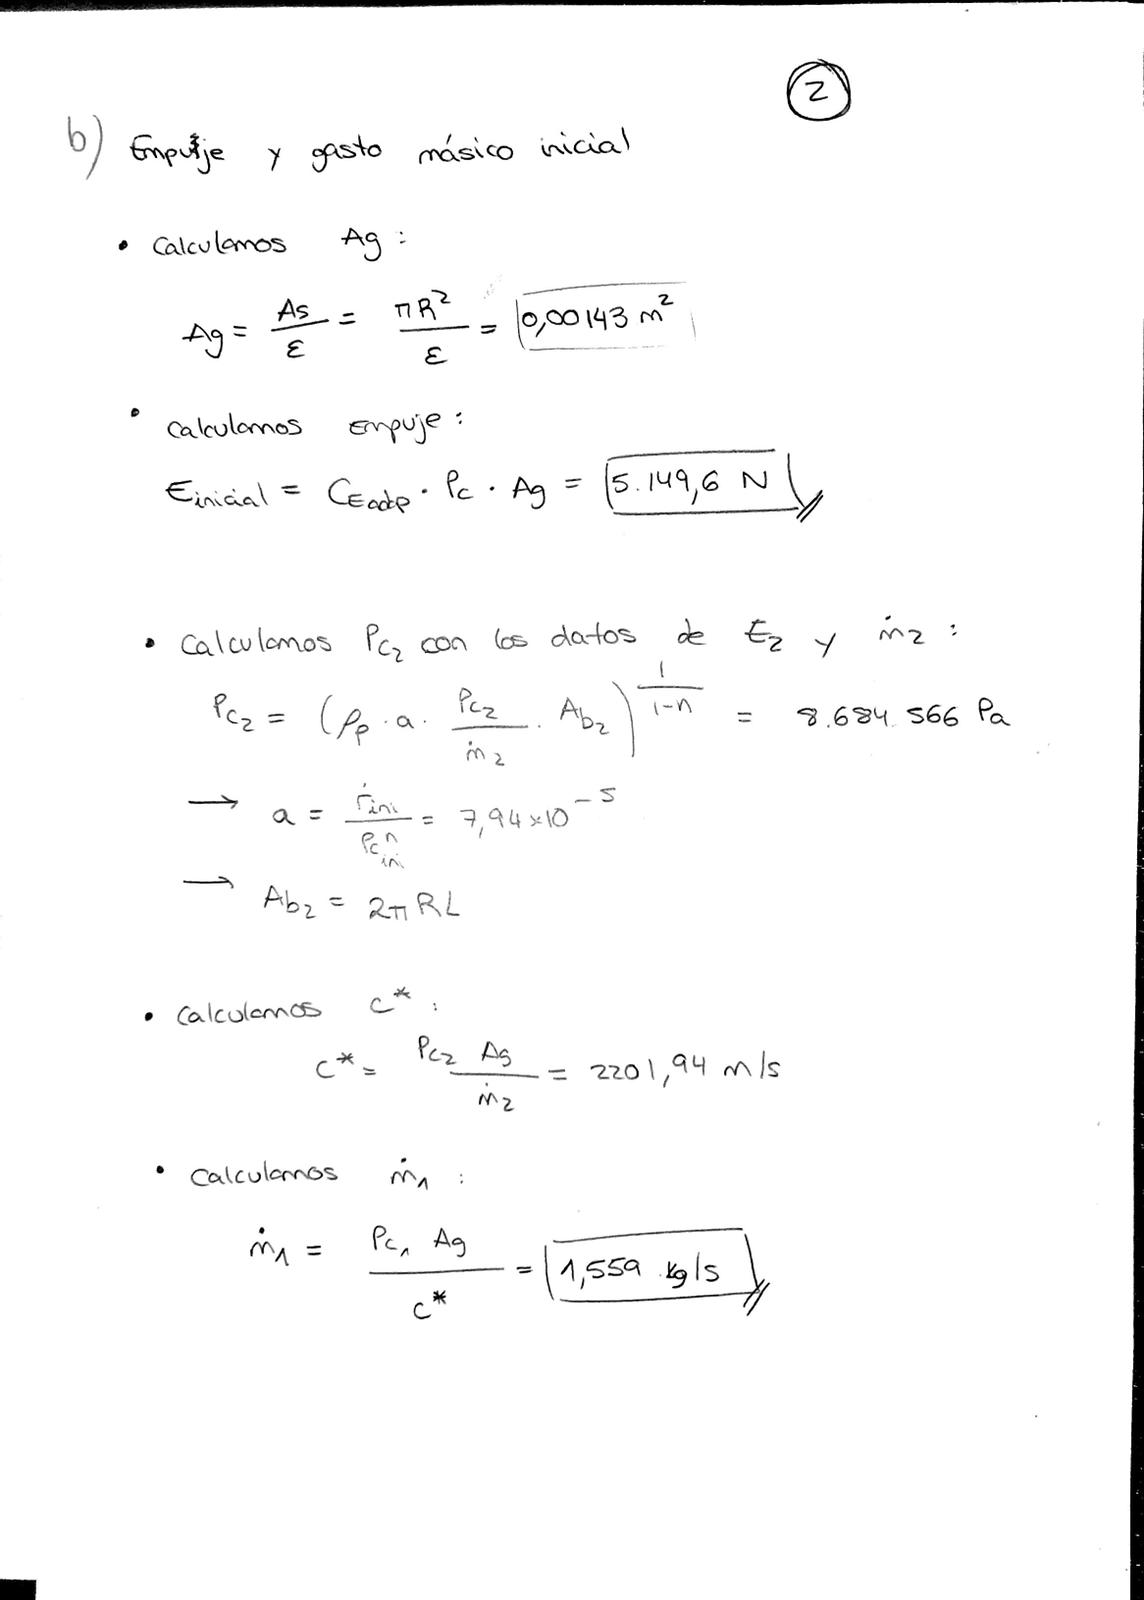 2
b) Empuje y gasto másico inicial
• Calculamos Ag :
Ag = As/ε = πR²/ε = 0,00143 m²
• Calculamos empuje :
Einicial = CEadap · Pc · Ag = 5.149,6 N
• Calculamos Pc₂ con los datos de E₂ y ṁ₂ :
Pc₂ = (ρp · a · Pc₂/ṁ₂ · Ab₂)^(1/(1-n)) = 8.684.566 Pa
→ a = ṙini/Pcini^n = 7,94×10⁻⁵
→ Ab₂ = 2πRL
• Calculamos c* :
c* = Pc₂ Ag/ṁ₂ = 2201,94 m/s
• Calculamos ṁ₁ :
ṁ₁ = Pc₁ Ag/c* = 1,559 kg/s